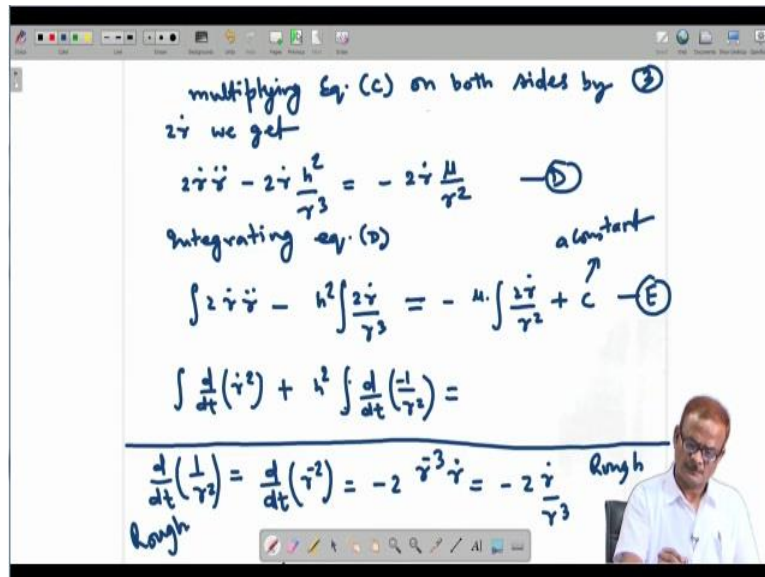 multiplying Eq. (C) on both sides by ③
2ṙ we get
2ṙr̈ - 2ṙ h²/r³ = - 2ṙ μ/r² —Ⓓ
Integrating eq. (D)
a constant
∫ 2ṙr̈ - h² ∫ 2ṙ/r³ = - μ. ∫ 2ṙ/r² + C —Ⓔ
∫ d/dt (ṙ²) + h² ∫ d/dt (-1/r²) =
d/dt (1/r²) = d/dt (r⁻²) = -2 r⁻³ ṙ = -2 ṙ/r³ Rough
Rough